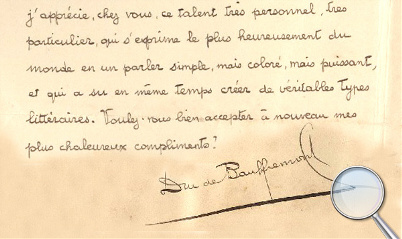 j'apprécie, chez vous, ce talent très personnel, très
particulier, qui s'exprime le plus heureusement du
monde en un parler simple, mais coloré, mais puissant,
et qui a su en même temps créer de véritables types
littéraires. Voulez-vous bien accepter à nouveau mes
plus chaleureux compliments?
Duc de Bauffremont